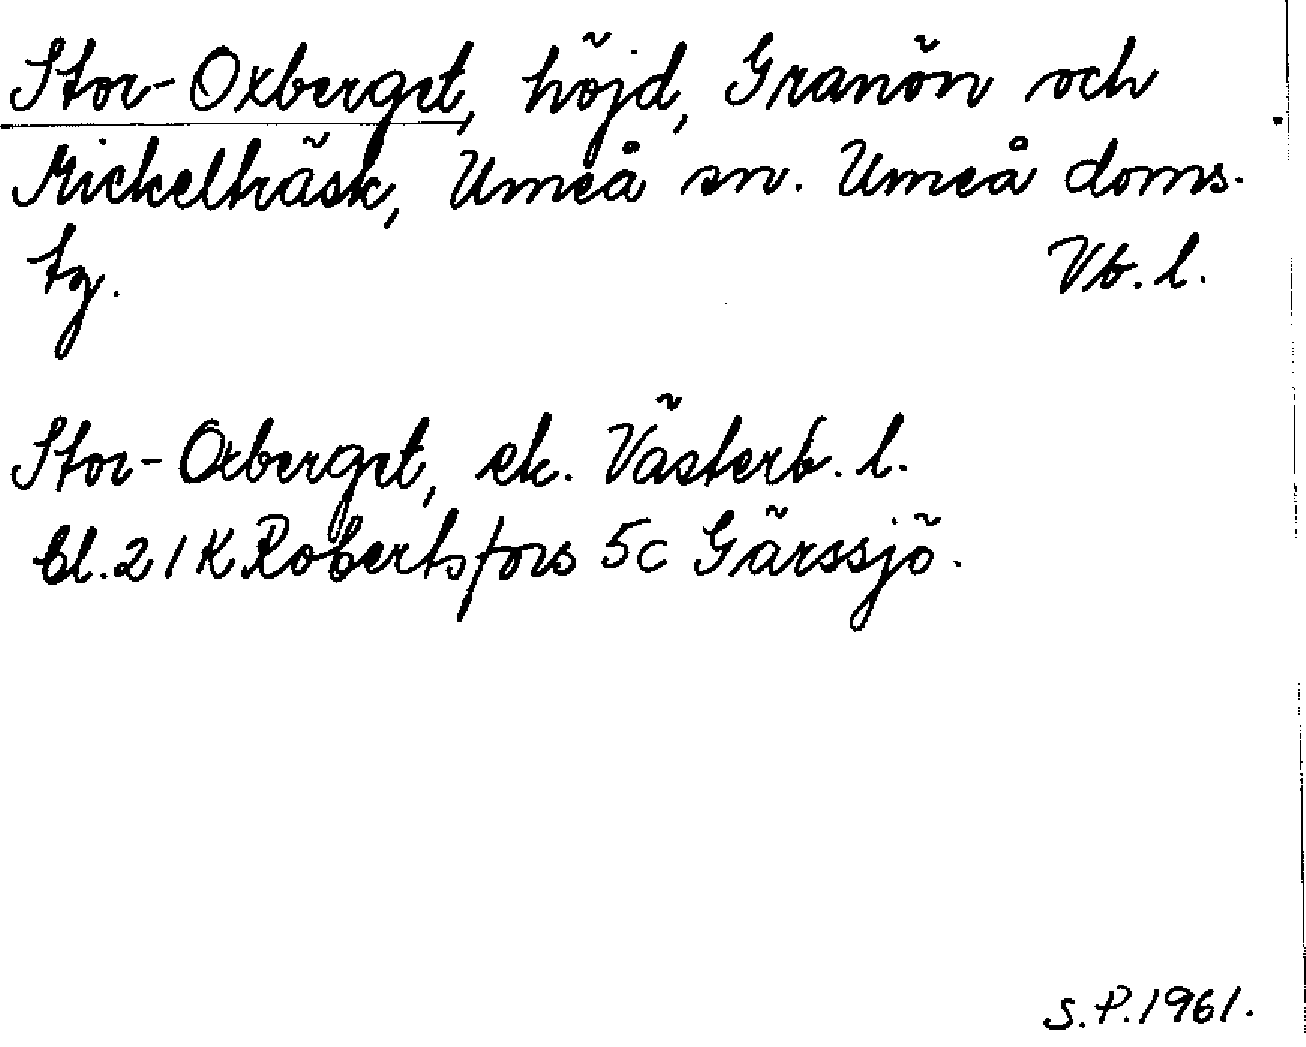 Stor-Oxberget, höjd, Granön och
Mickelträsk, Umeå sn. Umeå doms.
tg. Vb. l.
Stor-Oxberget, ek. Västerb. l.
bl. 21K Robertsfors 5c Gärssjö.
S.P. 1961.